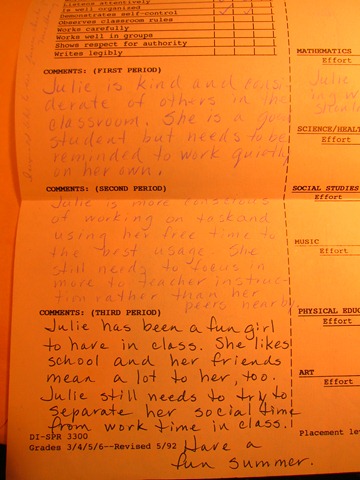 Listens attentively
Is well organized
Demonstrates self-control
Observes classroom rules
Works carefully
Works well in groups
Shows respect for authority
Writes legibly
COMMENTS: (FIRST PERIOD)
Julie is kind and consi
derate of others in the
classroom. She is a good
student but needs to be
reminded to work quietly
on her own.
COMMENTS: (SECOND PERIOD)
Julie is more conscious
of working on task and
using her free time to
the best usage. She
still needs to focus in
more to teacher instruc-
tion rather than her
peers nearby
COMMENTS: (THIRD PERIOD)
Julie has been a fun girl
to have in class. She likes
school and her friends
mean a lot to her, too.
Julie still needs to try to
separate her social time
from work time in class.
Have a
fun summer.
DI-SPR 3300
Grades 3/4/5/6--Revised 5/92
MATHEMATICS
Effort
Julie
SCIENCE/HEALT
Effort
SOCIAL STUDIES
Effort
MUSIC
Effort
PHYSICAL EDUC
Effort
ART
Effort
Placement le